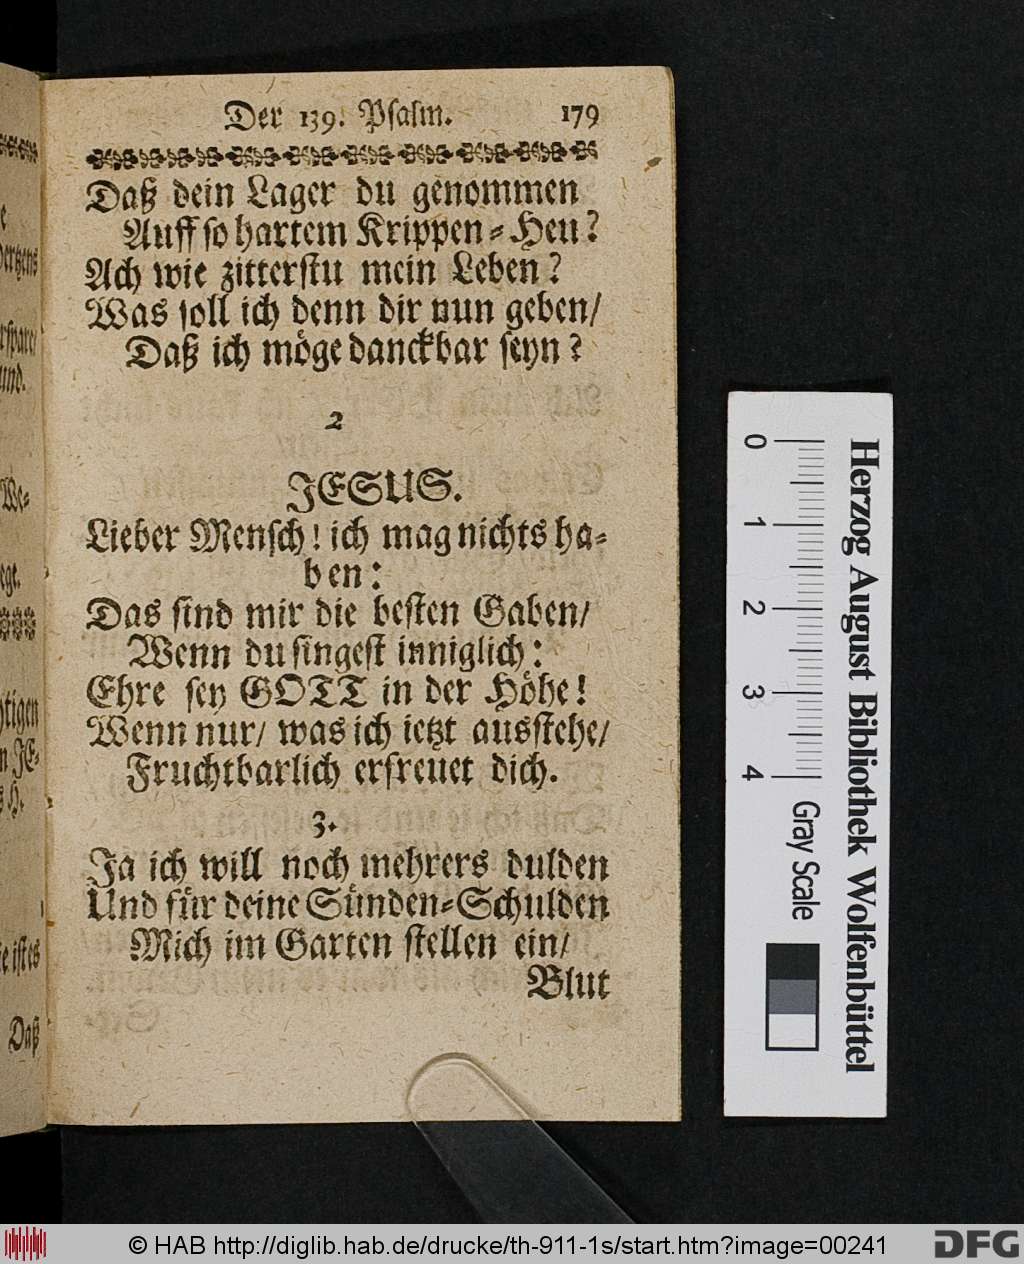 Der 139. Psalm. 179
Daß dein Lager du genommen
Auff so hartem Krippen-Heu?
Ach wie zitterstu mein Leben?
Was soll ich denn dir nun geben/
Daß ich möge danckbar seyn?
2
JESUS.
Lieber Mensch! ich mag nichts ha-
ben:
Das sind mir die besten Gaben/
Wenn du singest inniglich:
Ehre sey GOTT in der Höhe!
Wenn nur/ was ich ietzt ausstehe/
Fruchtbarlich erfreuet dich.
3.
Ja ich will noch mehrers dulden
Und für deine Sünden-Schulden
Mich im Garten stellen ein/
Blut
und.
We-
htigen
n JE-
e ist es
Daß
0 1 2 3 4
Gray Scale
Herzog August Bibliothek Wolfenbüttel
© HAB http://diglib.hab.de/drucke/th-911-1s/start.htm?image=00241
DFG